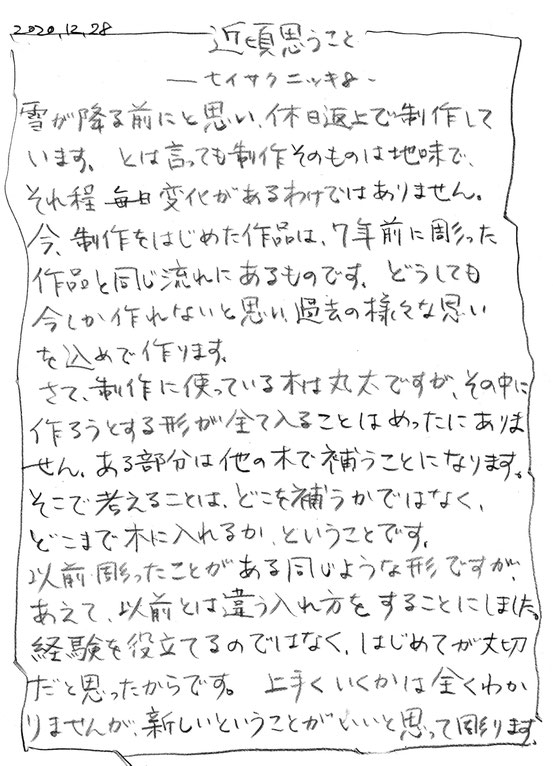 2020.12.28
近頃思うこと
―セイサクニッキ8-
雪が降る前にと思い、休日返上で制作して
います。とは言っても制作そのものは地味で、
それ程毎日変化があるわけではありません。
今、制作をはじめた作品は、7年前に彫った
作品と同じ流れにあるものです。どうしても
今しか作れないと思い、過去の様々な思い
を込めて作ります。
さて、制作に使っている木は丸太ですが、その中に
作ろうとする形が全て入ることはめったにありま
せん。ある部分は他の木で補うことになります。
そこで考えることは、どこを補うかではなく、
どこまで木に入れるか、ということです。
以前彫ったことがある同じような形ですが、
あえて、以前とは違う入れ方をすることにしました。
経験を役立てるのではなく、はじめてが大切
だと思ったからです。上手くいくかは全くわか
りませんが、新しいということがいいと思って彫ります。